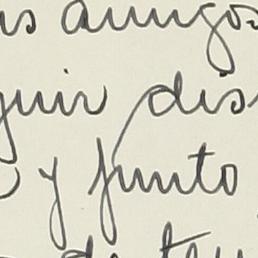 us amigos
guir dis
y junto